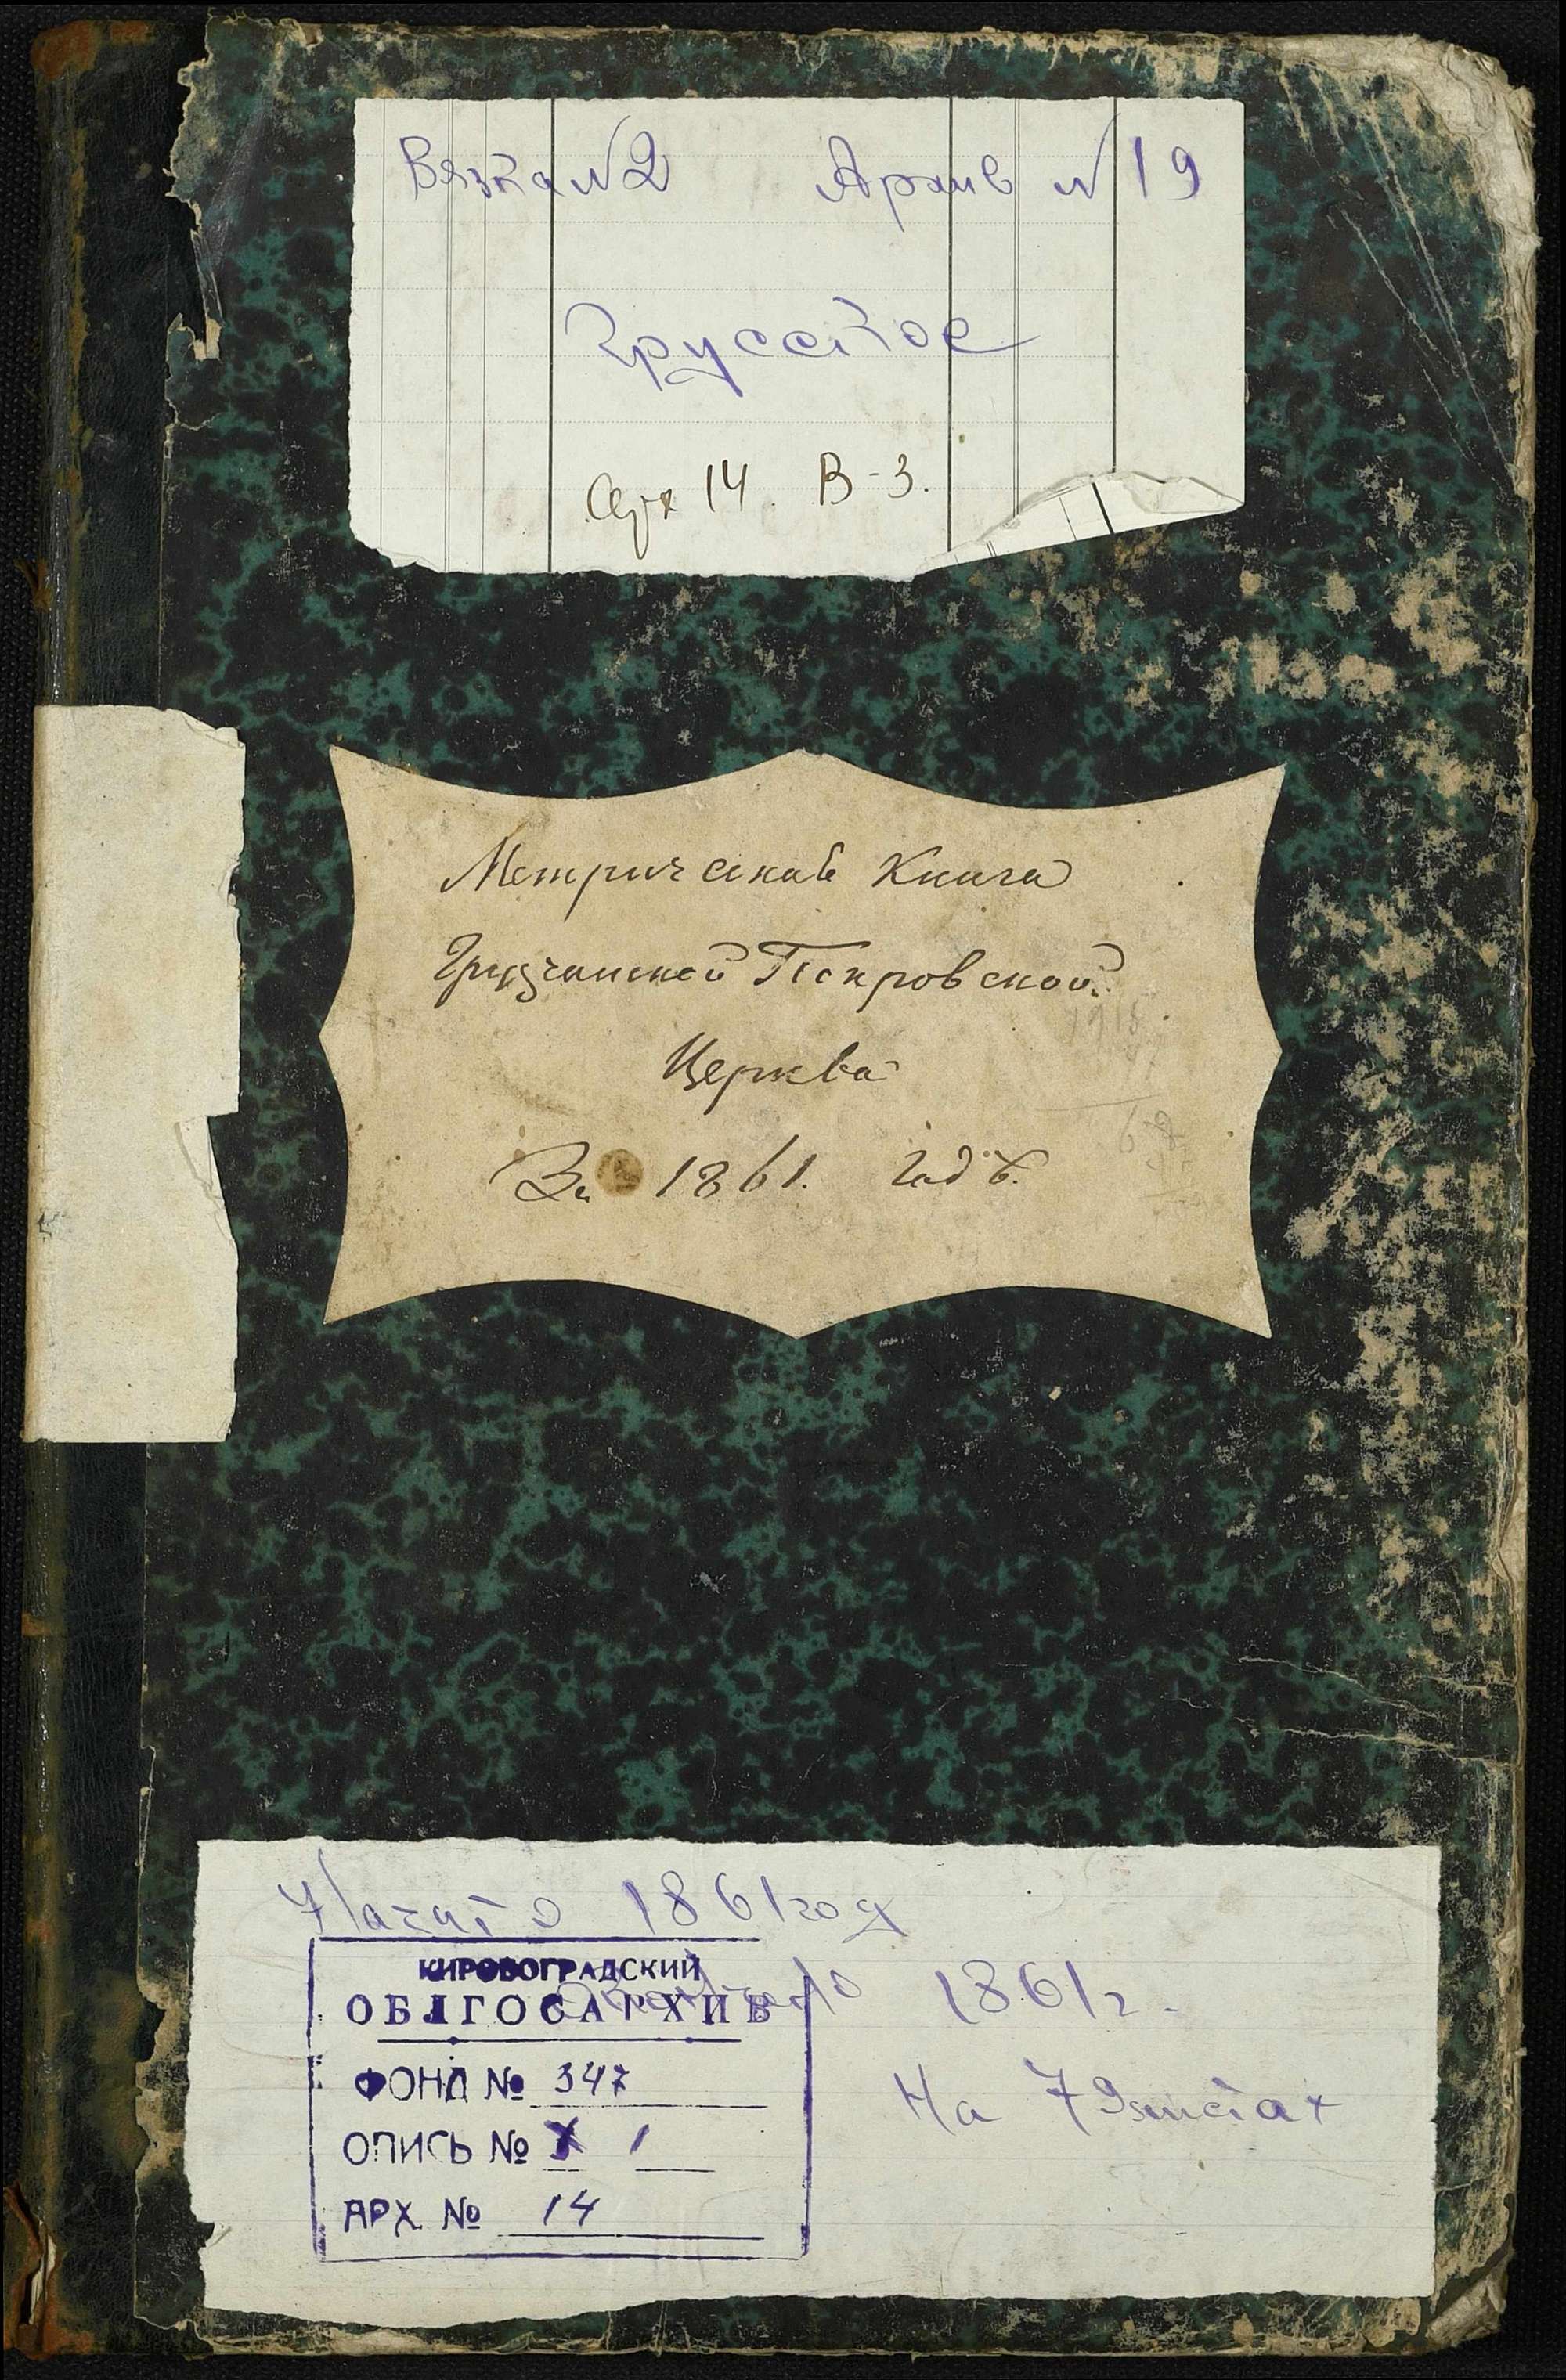 Вязка №2 Архив №19
Грусское
Арх 14. В-3.
Метрическая Книга
Грузчанской Покровской
Церкви
За 1861. годъ.
Начато 1861год
КИРОВОГРАДСКИЙ
ОБЛГОСАРХИВ
Окончено 1861г.
ФОНД № 347
На 79листах
ОПИСЬ № 1
АРХ. № 14